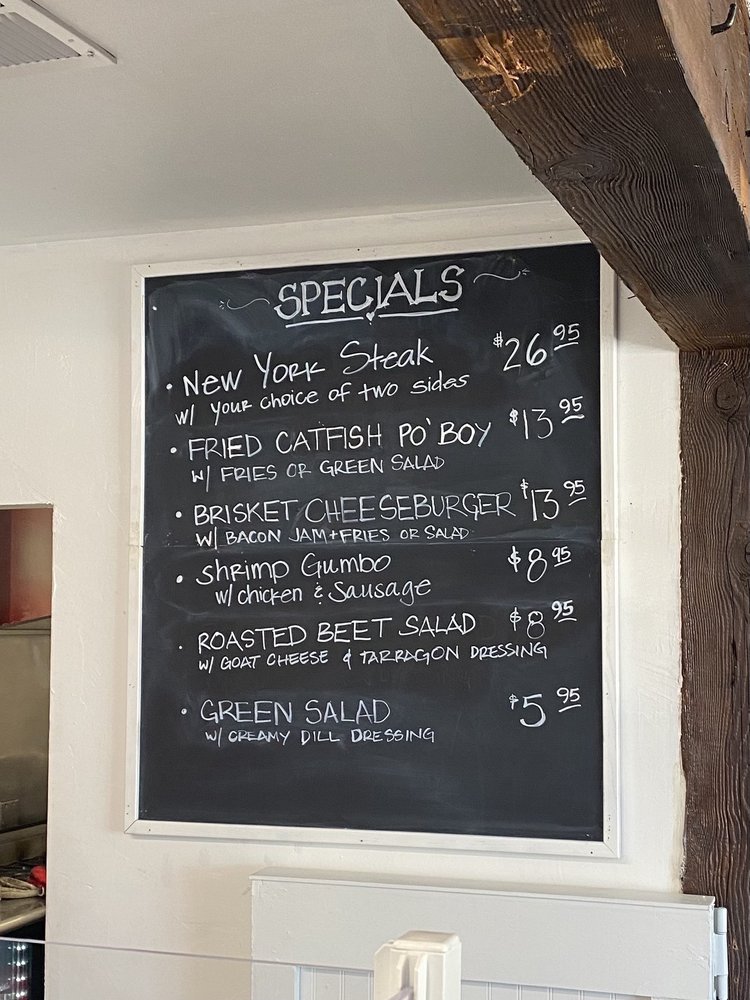 SPECIALS
• New York Steak $26.95
w/ your choice of two sides
• FRIED CATFISH PO'BOY $13.95
w/ FRIES OR GREEN SALAD
• BRISKET CHEESEBURGER $13.95
w/ BACON JAM + FRIES OR SALAD
• Shrimp Gumbo $8.95
w/ chicken & Sausage
• ROASTED BEET SALAD $8.95
w/ GOAT CHEESE & TARRAGON DRESSING
• GREEN SALAD $5.95
w/ CREAMY DILL DRESSING